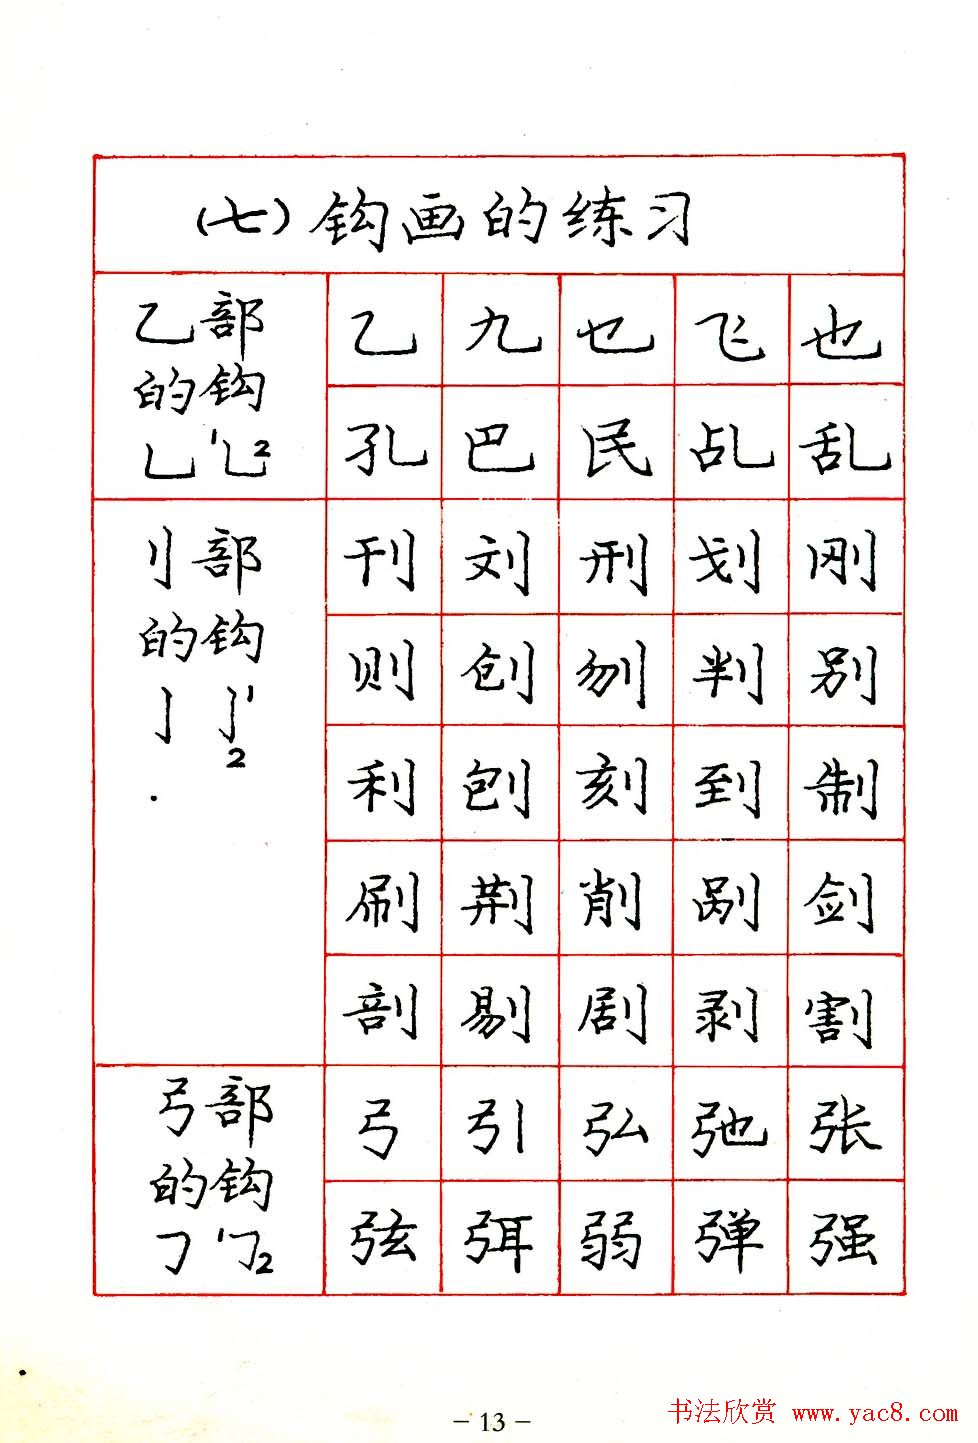 (七)钩画的练习
乙部
的钩
乚 乚 1 2
乙 九 乜 飞 也
孔 巴 民 乩 乱
刂部
的钩
亅 亅 1
2
刊 刘 刑 划 刚
则 创 刎 判 别
利 刨 刻 到 制
刷 荆 削 剐 剑
剖 剔 剧 剥 割
弓部
的钩
㇆ 1 ㇆ 2
弓 引 弘 弛 张
弦 弭 弱 弹 强
- 13 -
书法欣赏 www.yac8.com